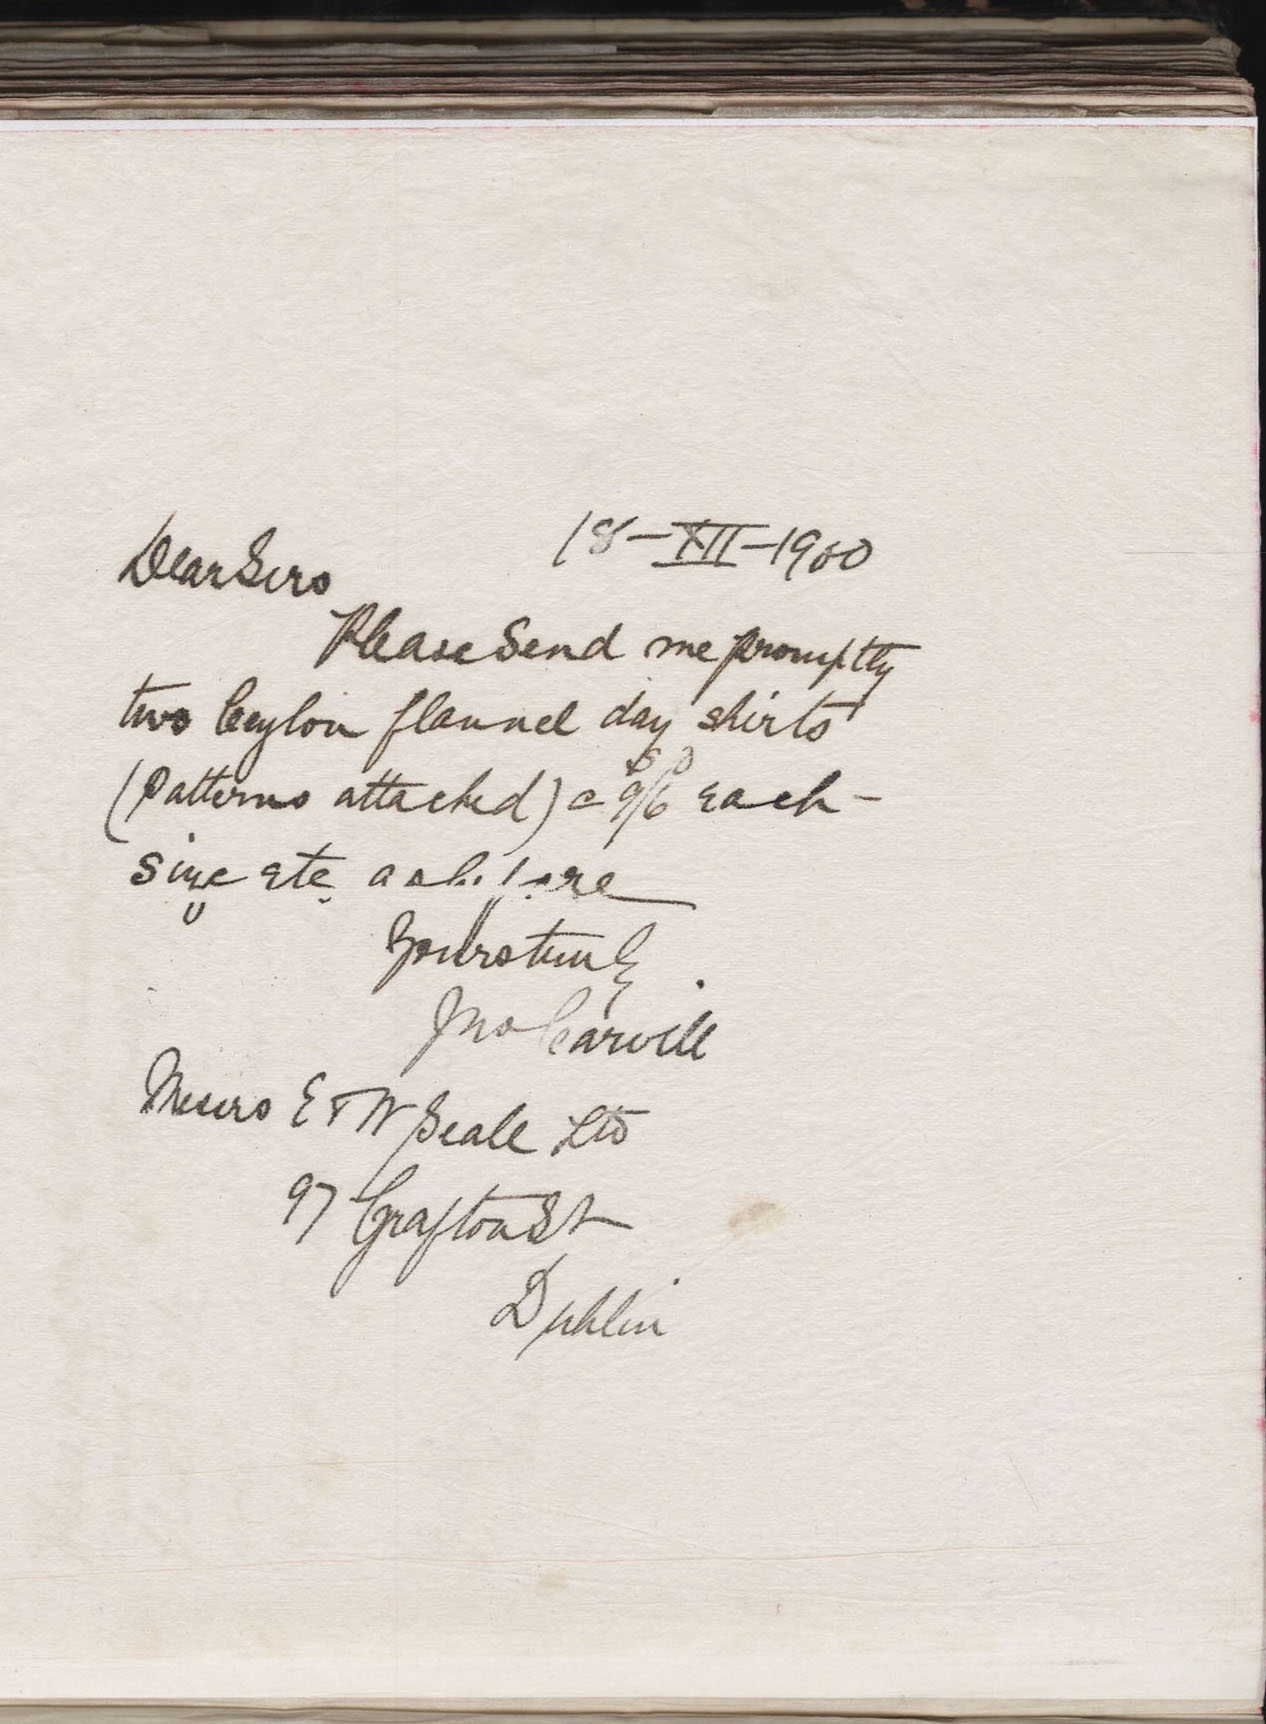 18-XII-1900
Dear Sirs
Please Send me promptly
two Ceylon flannel day shirts
s D
(Patterns attached) @ 9/6 each -
size etc as before
Yours truly
Jno Carvill
Messrs E & W Seale Ltd
97 Grafton St
Dublin